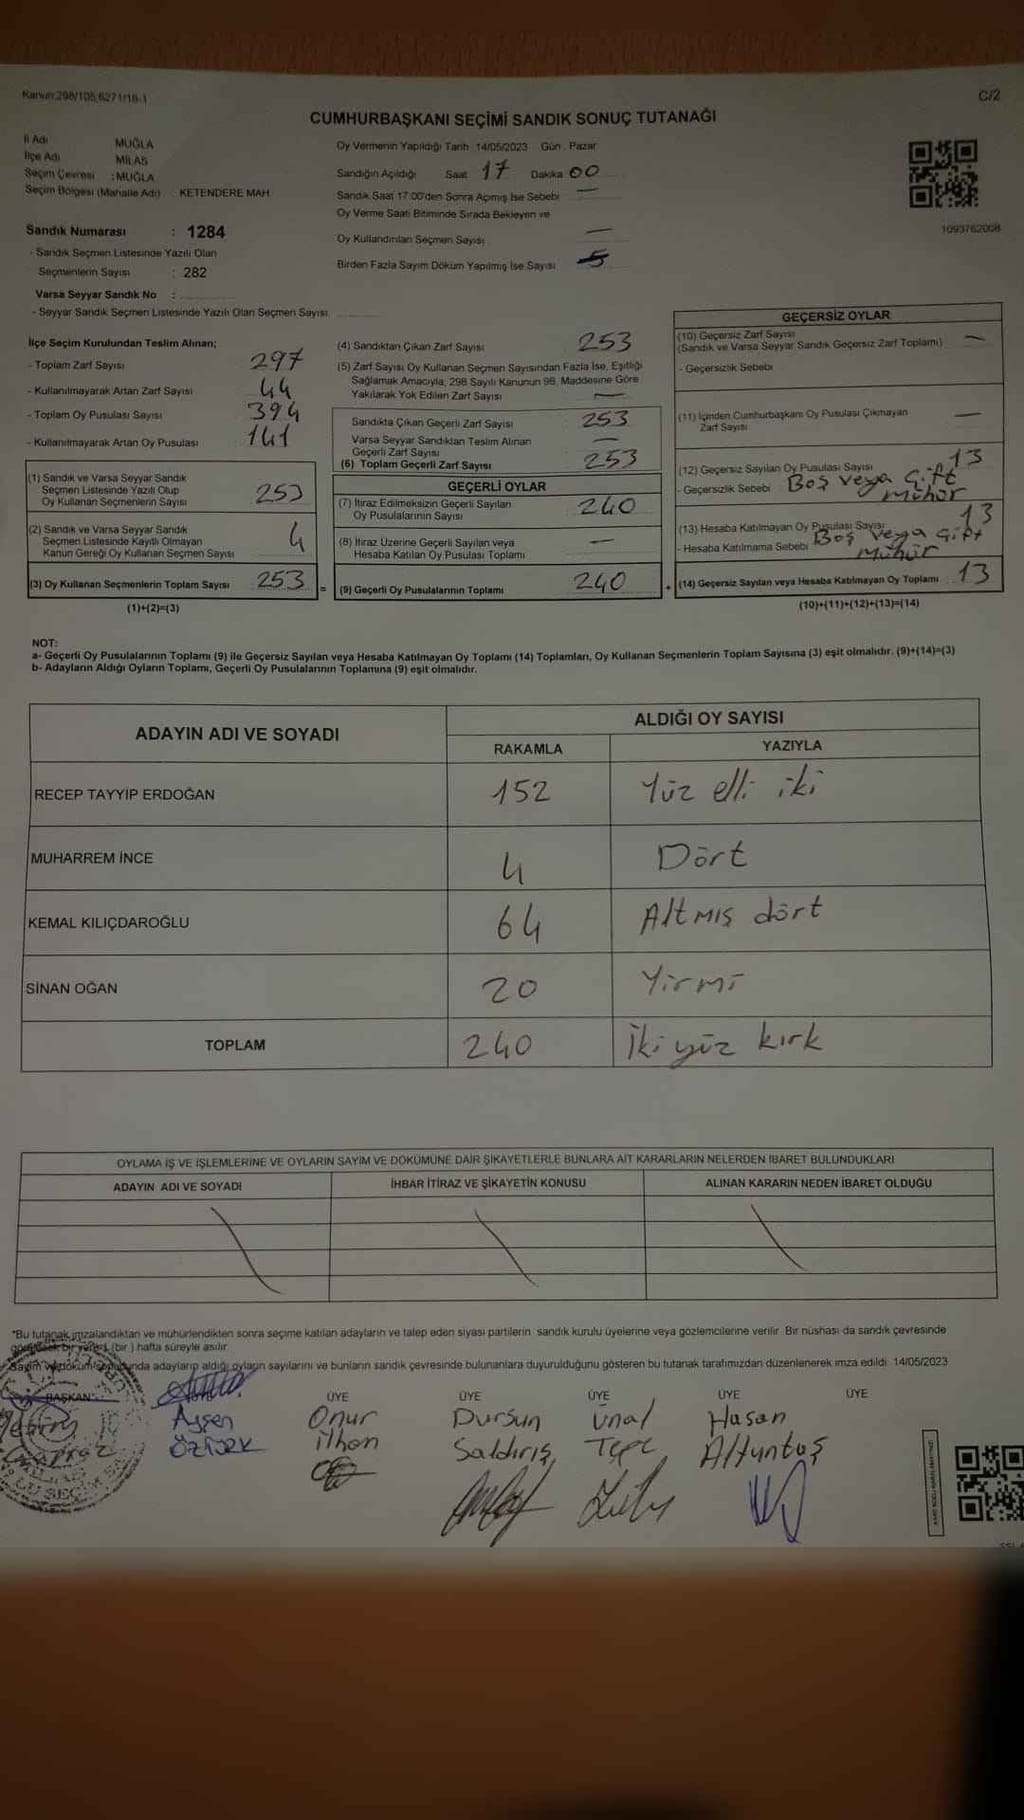 Kanun:298/105,6271/18-1
C/2
CUMHURBAŞKANI SEÇİMİ SANDIK SONUÇ TUTANAĞI
İl Adı MUĞLA
İlçe Adı MİLAS
Seçim Çevresi :MUĞLA
Seçim Bölgesi (Mahalle Adı) KETENDERE MAH.
Sandık Numarası : 1284
- Sandık Seçmen Listesinde Yazılı Olan
Seçmenlerin Sayısı : 282
Varsa Seyyar Sandık No :
- Seyyar Sandık Seçmen Listesinde Yazılı Olan Seçmen Sayısı
Oy Vermenin Yapıldığı Tarih 14/05/2023 Gün Pazar
Sandığın Açıldığı Saat 17 Dakika 00
Sandık Saat 17:00'den Sonra Açmış İse Sebebi —
Oy Verme Saati Bitiminde Sırada Bekleyen ve
Oy Kullandırılan Seçmen Sayısı —
Birden Fazla Sayım Döküm Yapılmış İse Sayısı
1093762008
İlçe Seçim Kurulundan Teslim Alınan;
- Toplam Zarf Sayısı 297
- Kullanılmayarak Artan Zarf Sayısı 44
- Toplam Oy Pusulası Sayısı 394
- Kullanılmayarak Artan Oy Pusulası 141
(1) Sandık ve Varsa Seyyar Sandık
Seçmen Listesinde Yazılı Olup
Oy Kullanan Seçmenlerin Sayısı 253
(2) Sandık ve Varsa Seyyar Sandık
Seçmen Listesinde Kayıtlı Olmayan
Kanun Gereği Oy Kullanan Seçmen Sayısı 4
(3) Oy Kullanan Seçmenlerin Toplam Sayısı 253 =
(1)+(2)=(3)
(4) Sandıktan Çıkan Zarf Sayısı 253
(5) Zarf Sayısı Oy Kullanan Seçmen Sayısından Fazla İse, Eşitliği
Sağlamak Amacıyla, 298 Sayılı Kanunun 98. Maddesine Göre
Yakılarak Yok Edilen Zarf Sayısı —
Sandıkta Çıkan Geçerli Zarf Sayısı 253
Varsa Seyyar Sandıktan Teslim Alınan
Geçerli Zarf Sayısı —
(6) Toplam Geçerli Zarf Sayısı 253
GEÇERLİ OYLAR
(7) İtiraz Edilmeksizin Geçerli Sayılan
Oy Pusulalarının Sayısı 240
(8) İtiraz Üzerine Geçerli Sayılan veya
Hesaba Katılan Oy Pusulası Toplamı —
(9) Geçerli Oy Pusulalarının Toplamı 240 +
GEÇERSİZ OYLAR
(10) Geçersiz Zarf Sayısı
(Sandık ve Varsa Seyyar Sandık Geçersiz Zarf Toplamı) —
- Geçersizlik Sebebi
(11) İçinden Cumhurbaşkanı Oy Pusulası Çıkmayan
Zarf Sayısı —
(12) Geçersiz Sayılan Oy Pusulası Sayısı 13
- Geçersizlik Sebebi Boş veya Çift
Mühür
(13) Hesaba Katılmayan Oy Pusulası Sayısı 13
- Hesaba Katılmama Sebebi Boş veya Çift
Mühür
(14) Geçersiz Sayılan veya Hesaba Katılmayan Oy Toplamı 13
(10)+(11)+(12)+(13)=(14)
NOT:
a- Geçerli Oy Pusulalarının Toplamı (9) ile Geçersiz Sayılan veya Hesaba Katılmayan Oy Toplamı (14) Toplamları, Oy Kullanan Seçmenlerin Toplam Sayısına (3) eşit olmalıdır. (9)+(14)=(3)
b- Adayların Aldığı Oyların Toplamı, Geçerli Oy Pusulalarının Toplamına (9) eşit olmalıdır.
ADAYIN ADI VE SOYADI
ALDIĞI OY SAYISI
RAKAMLA YAZIYLA
RECEP TAYYİP ERDOĞAN 152 Yüz elli iki
MUHARREM İNCE 4 Dört
KEMAL KILIÇDAROĞLU 64 Altmış dört
SİNAN OĞAN 20 Yirmi
TOPLAM 240 İki yüz kırk
OYLAMA İŞ VE İŞLEMLERİNE VE OYLARIN SAYIM VE DÖKÜMÜNE DAİR ŞİKAYETLERLE BUNLARA AİT KARARLARIN NELERDEN İBARET BULUNDUKLARI
ADAYIN ADI VE SOYADI İHBAR İTİRAZ VE ŞİKAYETİN KONUSU ALINAN KARARIN NEDEN İBARET OLDUĞU
*Bu tutanak imzalandıktan ve mühürlendikten sonra seçime katılan adayların ve talep eden siyasi partilerin sandık kurulu üyelerine veya gözlemcilerine verilir. Bir nüshası da sandık çevresinde
(bir) hafta süreyle asılır.
adayların aldığı oyların sayılarını ve bunların sandık çevresinde bulunanlara duyurulduğunu gösteren bu tutanak tarafımızdan düzenlenerek imza edildi. 14/05/2023
BAŞKAN ÜYE ÜYE ÜYE ÜYE ÜYE
Ayşen Onur Dursun Ünal Hasan
İlhan Saldırış Tepe Altuntaş